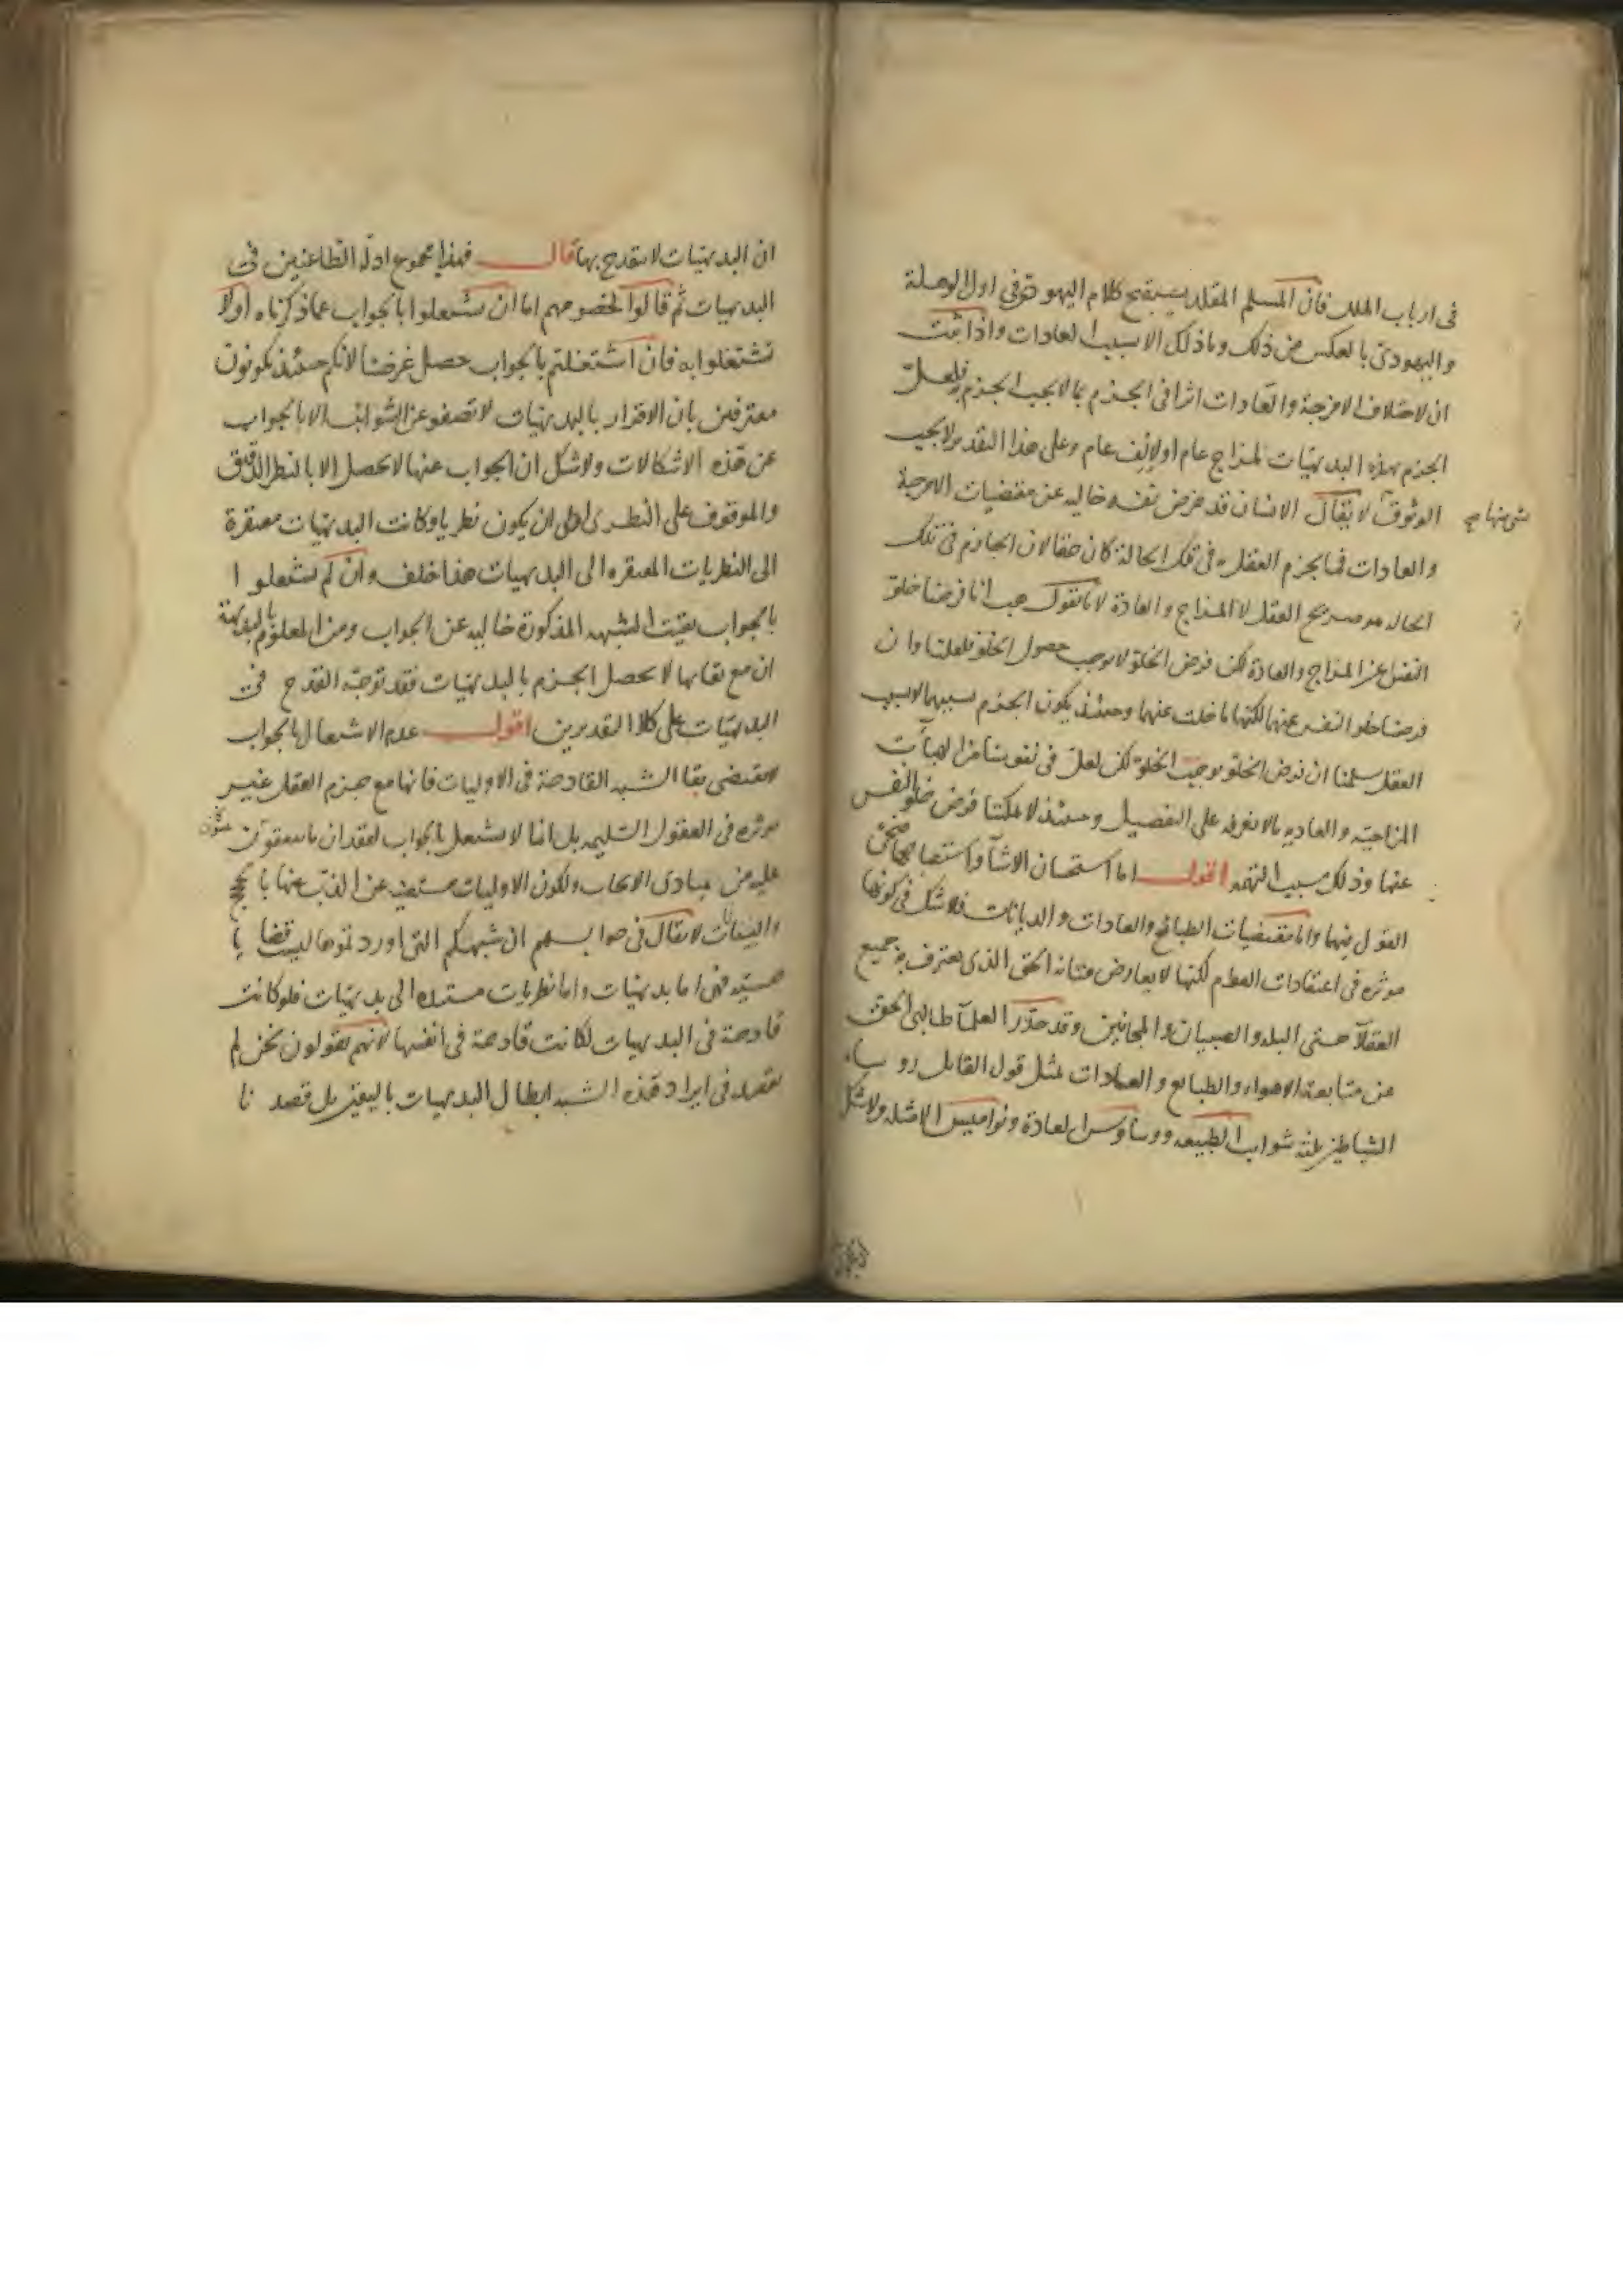 فى ارباب الملل فان المسلم المقلد يستقبح كلام اليهودى فى اول الوهلة
واليهودى بالعكس من ذلك وما ذلك الا بسبب العادات واذا ثبت
ان لاختلاف الامزجة والعادات اثرا فى الجزم بما لا يجب الجزم به فلعل
الجزم بهذه البديهيات لمزاج عام او لإلف عام وعلى هذا التقدير لا يجب
الوثوق لا يقال الانسان قد يفرض نفسه خاليه عن مقتضيات الامزجة
بشى منها صح
والعادات فما يجزم العقل به فى تلك الحالة كان حقا لان الجازم فى تلك
الحاله هو صريح العقل لا المزاج والعادة لانا نقول هب انا فرضنا خلو
النفس عن المزاج والعادة لكن فرض الخلو لا يوجب حصول الخلو فلعلنا وان
فرضنا خلو النفس عنها لكنها ما خلت عنهما وحينئذ يكون الجزم بسببهما لا بسبب
العقل سلمنا ان فرض الخلو يوجب الخلو لكن لعل فى نفوسنا من الهيأت
المزاجيه والعاديه ما لا نعرفه على التفصيل وحينئذ لا يمكننا فرض خلو النفس
عنها وذلك سبب التهمه اقول اما استحسان الاشيآ واستقباحها
القول فيها واما مقتضيات الطبائع والعادات والديانات فلا شك فى كونها
موثره فى اعتقادات العوام لكنها لا يعارض متانة الحق الذى يعترف به جميع
العقلآ حتى البله والصبيان والمجانين وقد حذر العلمآ طالبى الحق
عن متابعة الاهواء والطبايع والعادات بمثل قول القايل رو سا
الشياطين ثلثة شوايب الطبيعه ووساوس العادة ونواميس الامثله ولا شك
ان البديهيات لا ينقدح بها قال فهذا مجموع ادلة الطاعنين فى
البديهيات ثم قالوا لخصومهم اما ان تشتغلوا بالجواب عما ذكرناه اولا
تشتغلوا به فان اشتغلتم بالجواب حصل غرضنا لانكم حينئذ تكونون
معترفين بان الاقرار بالبديهيات لا تصفو عن الشوائب الا بالجواب
عن هذه الاشكالات ولا شك ان الجواب عنها لا يحصل الا بالنظر الدقيق
والموقوف على النظرى اولى ان يكون نظريا وكانت البديهيات مفتقرة
الى النظريات المفتقره الى البديهيات هذا خلف وان لم تشتغلوا
بالجواب بقيت الشبهه المذكورة خاليه عن الجواب ومن المعلوم بالبديهة
ان مع بقايها لا يحصل الجزم بالبديهيات فقد توجه القدح فى
البديهيات على كلا التقديرين اقول عدم الاشتغال بالجواب
لا يقتضى بقا الشبه القادحة فى الاوليات فانها مع جزم العقل غير
موثره فى العقول السليمه بل انما لا يشتغل بالجواب لفقدان ما يتفقون
عليه من مبادى الابحاث ولكون الاوليات مستغنيه عن الذب عنها بالحجج
والبينات لا يقال فى جوابهم ان شبهكم التى اوردتموها ليست قضايا
حسيه فهى اما بديهيات واما نظريات مستنده الى بديهيات فلو كانت
قادحة فى البديهيات لكانت قادحة فى انفسها لانهم يقولون نحن لم
نقصد فى ايراد هذه الشبه ابطال البديهيات باليقين بل قصدنا